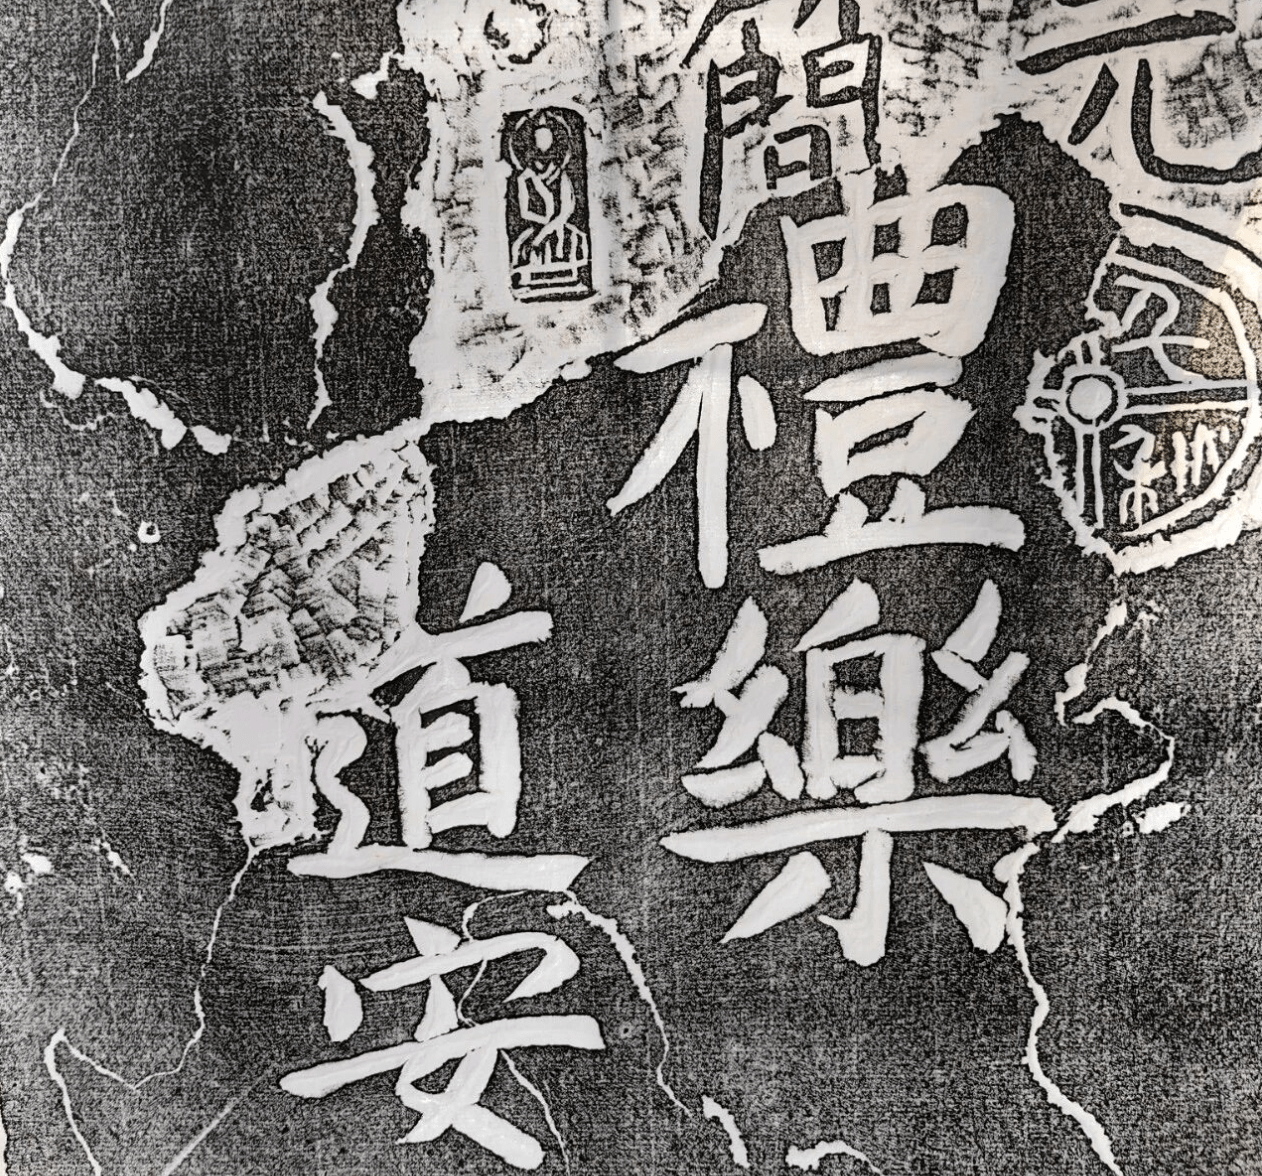 元
間
禮樂
道安